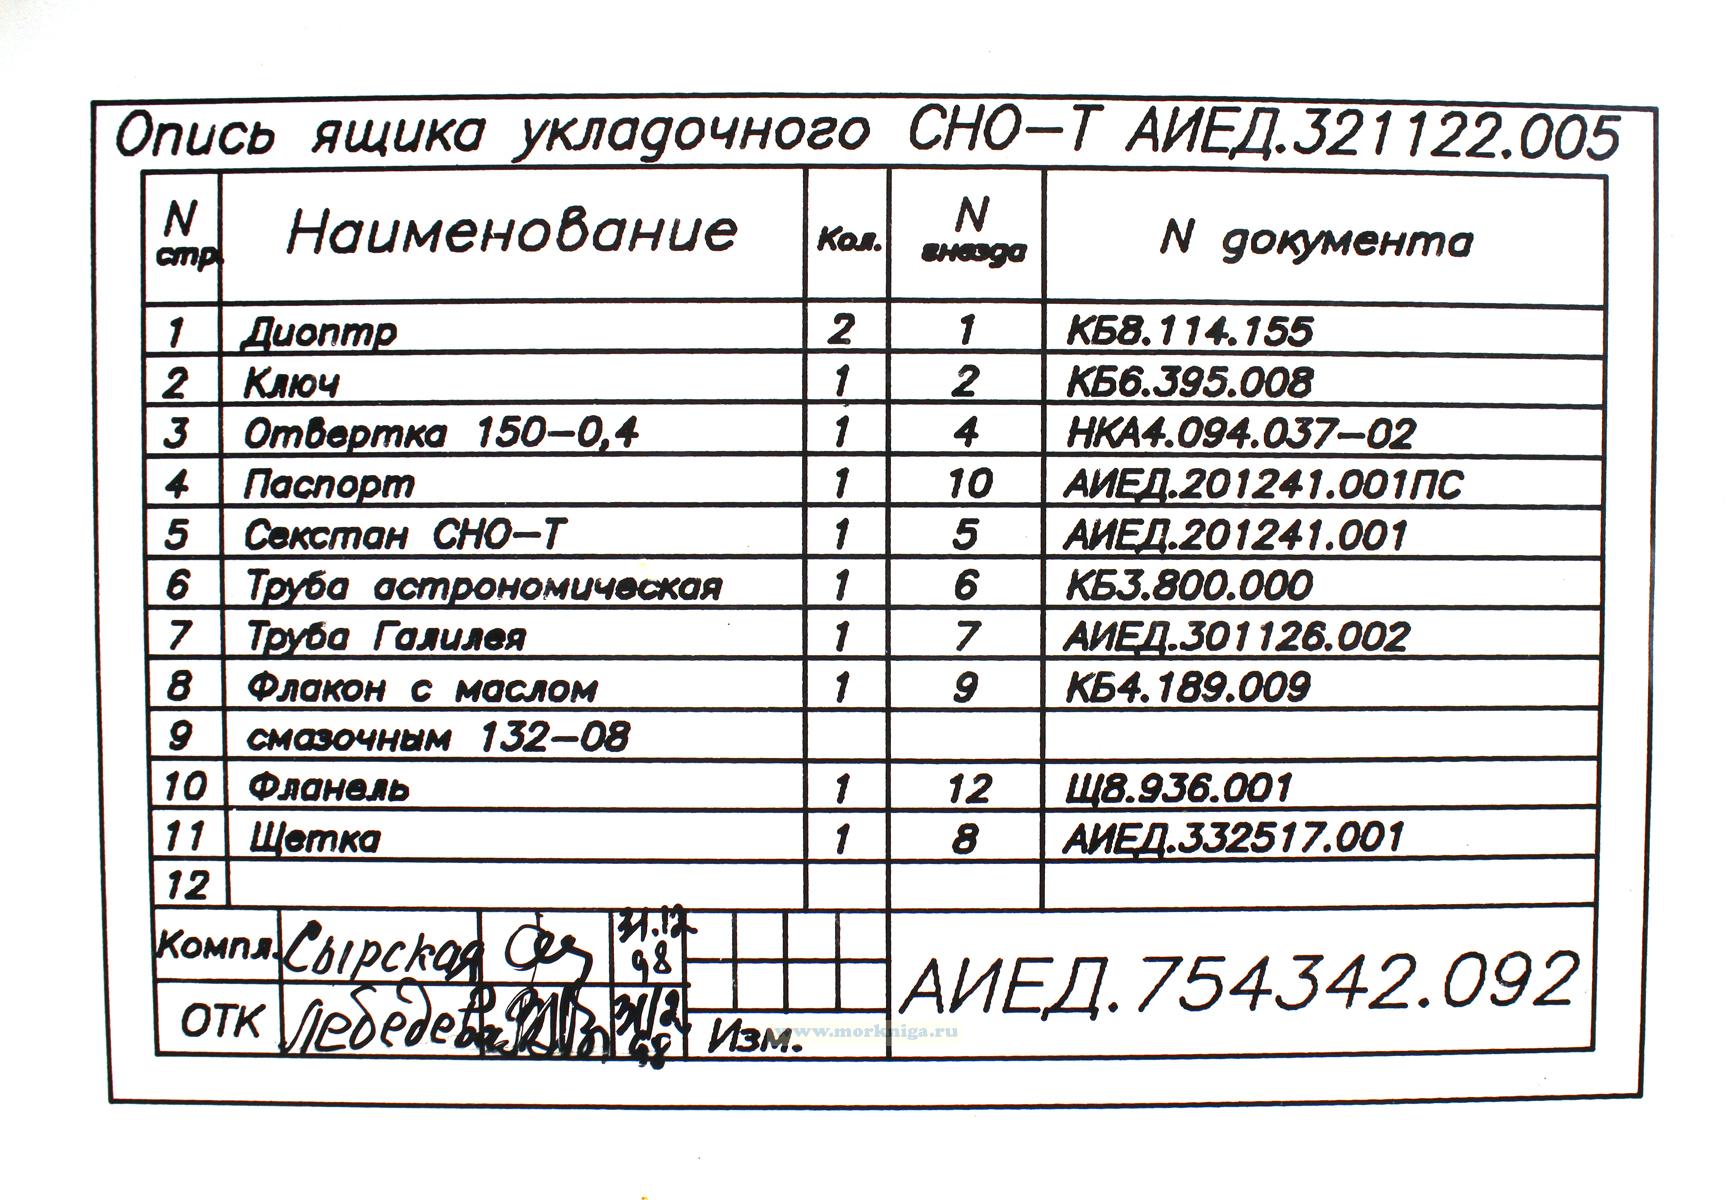 Опись ящика укладочного СНО-Т АИЕД.321122.005
N стр. Наименование Кол. N гнезда N документа
1 Диоптр 2 1 КБ8.114.155
2 Ключ 1 2 КБ6.395.008
3 Отвертка 150-0,4 1 4 НКА4.094.037-02
4 Паспорт 1 10 АИЕД.201241.001ПС
5 Секстан СНО-Т 1 5 АИЕД.201241.001
6 Труба астрономическая 1 6 КБ3.800.000
7 Труба Галилея 1 7 АИЕД.301126.002
8 Флакон с маслом 1 9 КБ4.189.009
9 смазочным 132-08
10 Фланель 1 12 Щ8.936.001
11 Щетка 1 8 АИЕД.332517.001
12
Компл. Сырская 31.12 98
ОТК Лебедева 31/2 98
Изм.
АИЕД.754342.092
www.morkniga.ru